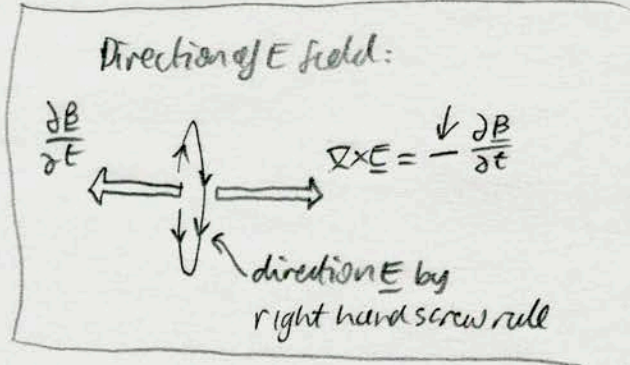 Direction of E field:
∂B/∂t
∇×E = - ∂B/∂t
direction E by
right hand screw rule